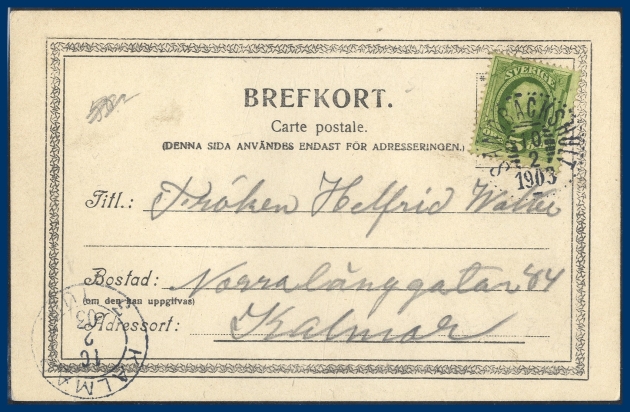 BREFKORT.
Carte postale.
(DENNA SIDA ANVÄNDES ENDAST FÖR ADRESSERINGEN.)
SVERIGE
10
2
1903
Titl.: Fröken Helfrid Walter
Bostad: Norralånggatan 44
(om den kan uppgifvas)
Adressort: Kalmar
KALMAR
16
2